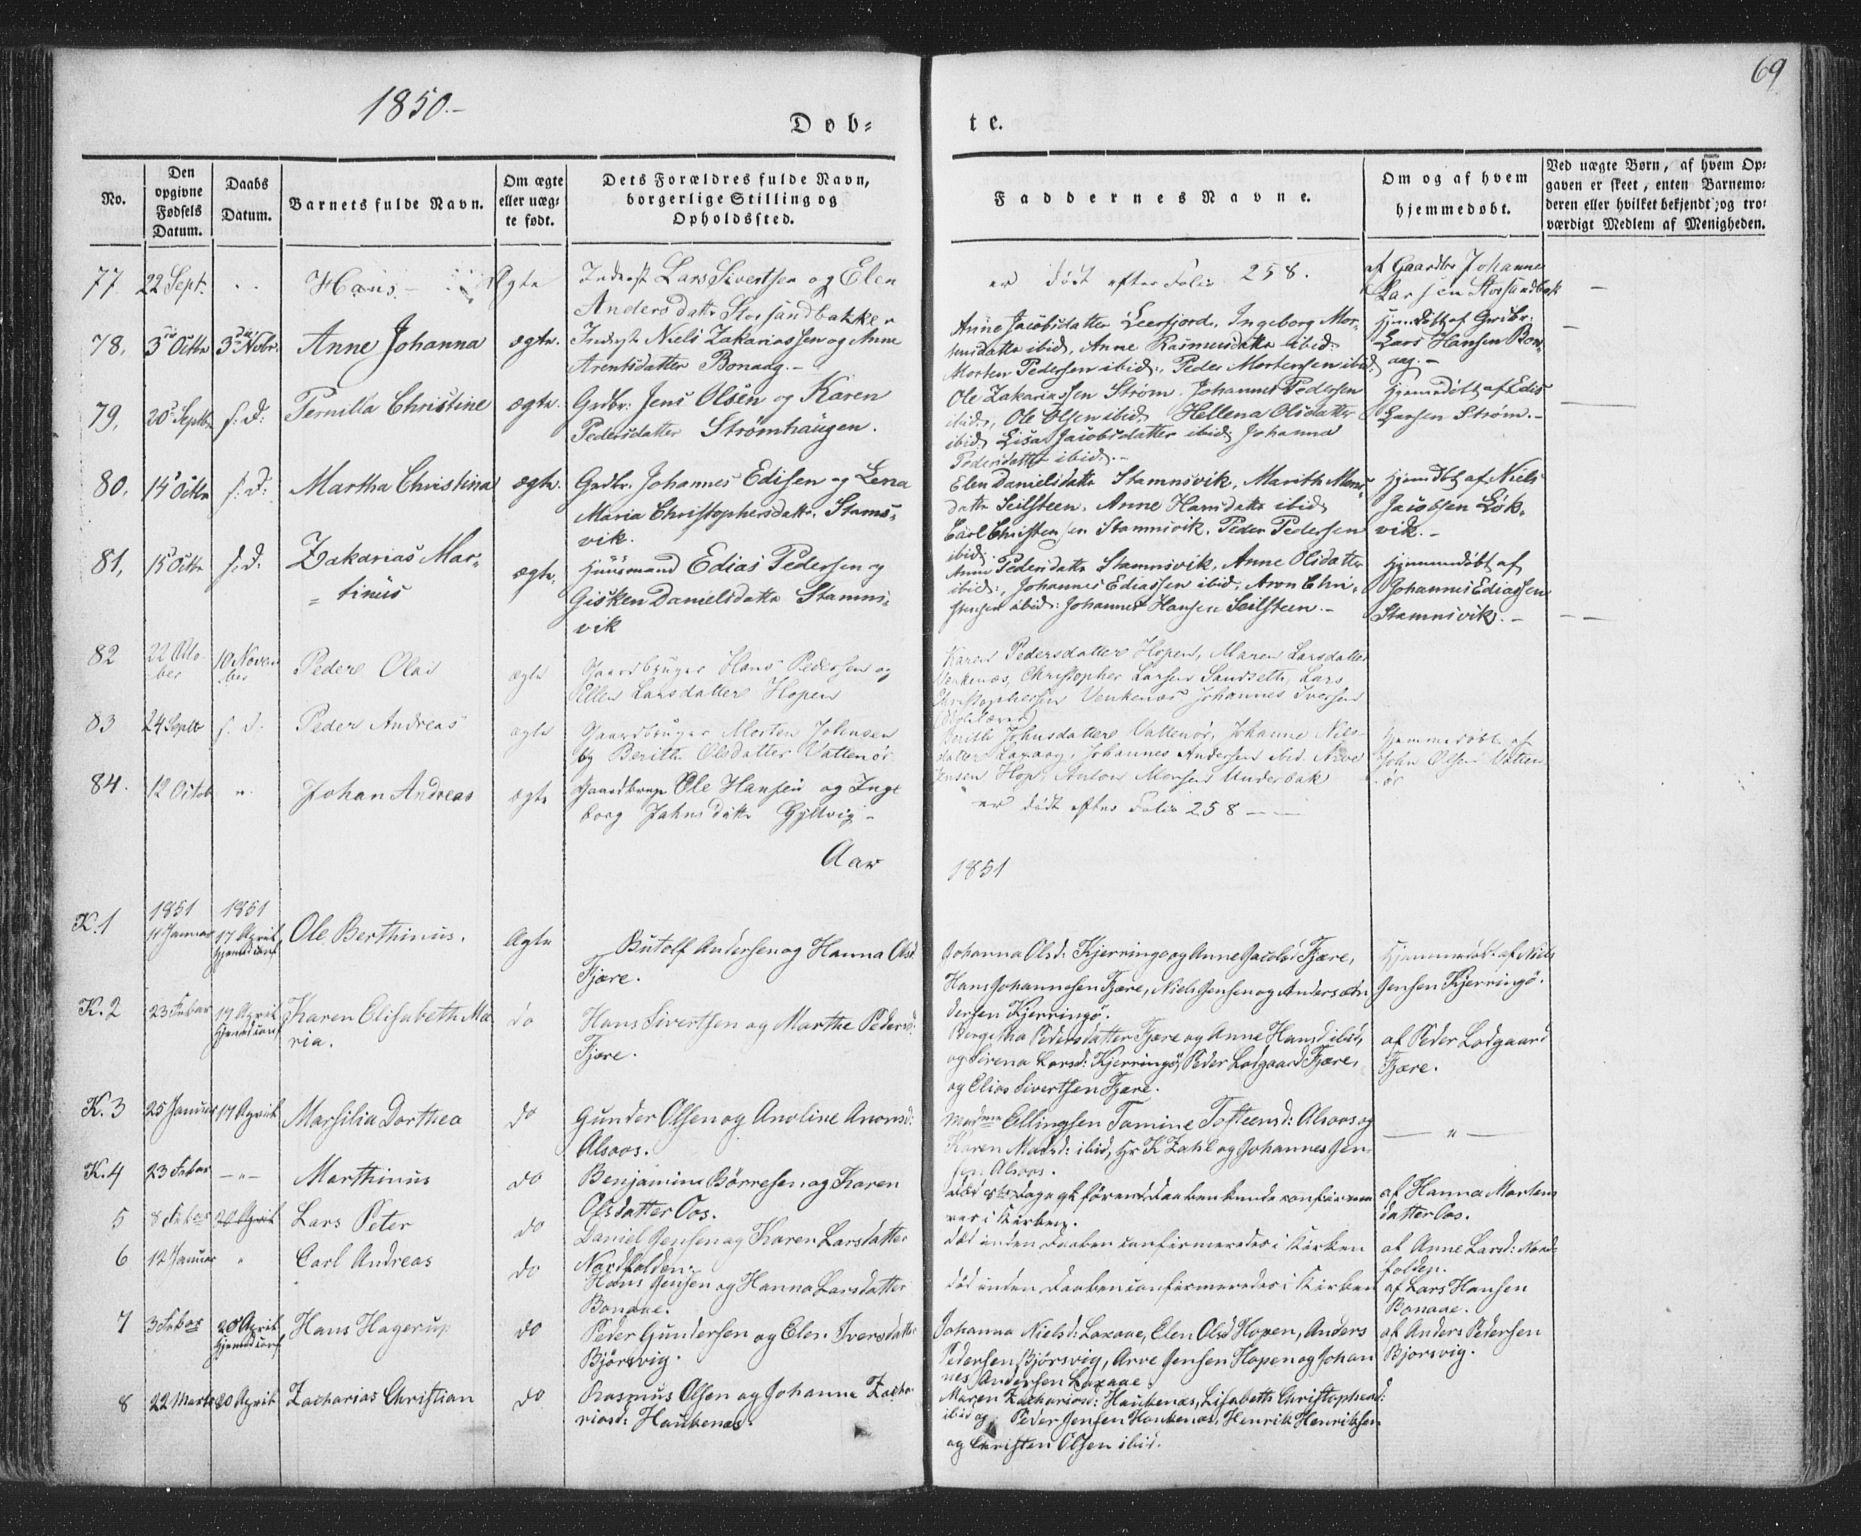 1850.-
69
Døb-
te.
No.
Den opgivne Fødsels Datum.
Daabs Datum.
Barnets fulde Navn.
Om ægte eller uægte født.
Dets Forældres fulde Navn, borgerlige Stilling og Opholdssted.
Faddernes Navne.
Om og af hvem hjemmedøbt.
Ved uægte Børn, af hvem Opgaven er skeet, enten Barnemoderen eller hvilket bekjendt og troværdigt Medlem af Menigheden.
77 22 Sept. Hans Ægte Inderst Lars Sivertsen og Elen
Andersdatr Storsandbakken
er død efter Folio 258.
af Gaardbr Johannes
Larsen Storsandbak
78. 3die Octbr 3die Novbr. Anne Johanna ægte. Inderst Niels Zakariassen og Anne
Arentsdatter Bonaag.-
Anne Jacobsdatter Leerfjord, Ingeborg Mor-
tensdatter ibid, Anne Rasmusdatter ibid
Morten Pedersen ibid, Peder Mortensen ibid
Hjemdøbt af Grdbr.
Lars Hansen Bon-
aag.-
79. 20 Septbr s.D. Pernilla Christine ægte. Grdbr. Jens Olsen og Karen
Pedersdatter Strømhaugen.
Ole Zakariassen Strøm, Johannes Pedersen
ibid, Ole Olsen ibid, Hellena Olsdatter
ibid, Lisa Jacobsdatter ibid, Johanna
Pedersdatter ibid.-
Hjemmedøbt af Edis
Larsen Strøm.-
80. 14 Octbr s.D. Martha Christina ægte. Grdbr. Johannes Edisen og Lena
Maria Christophersdatr. Stams-
vik.
Elen Danielsdatr Stamnsvik, Marith Mons-
datr Seilsteen, Anne Hansdatr ibid
Carl Christensen Stamnsvik, Peder Pedersen
ibid.
Hjemdøbt af Niels
Jacobsen Løk-
vik.-
81. 15 Octbr s.D. Zakarias Mar-
tinus
ægte. Huusmand Edias Pedersen og
Gisken Danielsdatr Stamns-
vik
Anne Pedersdatr Stamnsvik, Anne Olsdatter
ibid, Johannes Ediassen ibid, Aron Chri-
stensen ibid, Johannes Hansen Seilsteen.-
Hjemmedøbt af
Johannes Ediassen
Stamnsvik.-
82 22 Octo-
ber
10 Novem
ber
Peder Olai ægte Gaardbruger Hans Pedersen og
Ellen Larsdatter Hopen
Karen Pedersdatter Hopen, Maren Larsdatter
Venkenæs, Christopher Larsen Sandseth, Lars
Christophersen Venkenæs Johannes Iversen
83 24 Septbr s.d. Peder Andreas ægte Gaardbruger Morten Johnsen
og Berith Olsdatter Vattenør
Berith Johnsdatter Vattenør, Johanne Niels-
datter Laxaag, Johannes Andersen ibid, Arve
Jensen Hop, Anton Monsen Underbak
Hjemmedøbt af
John Olsen Vatten
ør
84. 12 Octob " Johan Andreas ægte Gaardbrug Ole Hansen og Inge
borg Jahnsdatr Gyltvig -
er død efter Folio 258 - -
Aar
1851
K.1 1851
11 Januar
1851
17 April
Hjemd conf
Ole Berthinus. Ægte Butolf Andersen og Hanna Olsd
Fjære.
Johanna Olsd: Kjerringø og Anne Jacobsd Fjære,
Hans Johannesen Fjære, Niels Jensen og Anders An
dersen Kjerringø.
Hjemmedøbt af Niels
Jensen Kjerringø.
K.2 23 Febar 17 April
Hjemd conf
Karen Elisabeth Ma
ria.
do Hans Sivertsen og Marthe Pedersd:
Fjære.
Bergitha Pedersdatter Fjære og Anne Hansd ibid,
og Sirena Larsd: Kjerringø, Peder Lodgaard Fjære,
og Elias Sivertsen Fjære.
af Peder Lodgaard
Fjære.
K.3 25 Januar 17 April Marsilia Dorthea do Gunder Olsen og Anoline Aronsd:
Alsoos.
Madme Ellingsen Tomine Tosteensd: Alsoos og
Karen Madsd: ibid, Hr K Zahl og Johannes Jen
sen Alsoos.
— " —
K.4 23 Febar -"- Marthinus do Benjamin Børresen og Karen
Olsdatter Oos.
død 8te Dage gl førend Daaben kunde confirme
res i Kirken.
af Hanna Mortens
datter Oos.
5 8 Febar 20 April Lars Peter do Daniel Jensen og Karen Larsdatter
Nordfolden.
død inden Daaben confirmeredes i Kirken
af Anne Larsd: Nord
folden.
6 12 Januar " Carl Andreas do Hans Jensen og Hanna Larsdatter
Bonaae.
død inden Daaben confirmeredes i Kirken
af Lars Hansen
Bonaae.
7 3 Febar 20 April
Hjemd conf
Hans Hagerup do Peder Gundersen og Elen Iversdatter
Bjørsvig.
Johanna Nielsd: Laxaae, Elen Olsd Hopen, Anders
Pedersen Bjørsvig, Arve Jensen Hopen og Johan
nes Andersen Laxaae.
af Anders Pedersen
Bjørsvig.
8 22 Marts 20 April Zacharias Christian do Rasmus Olsen og Johanna Zacha
riasd: Haukenæs.
Maren Zachariasd: Haukenæs, Lisabeth Christophersd:
ibid og Peder Jensen Haukenæs, Henrik Henriksen
og Christen Olsen ibid.